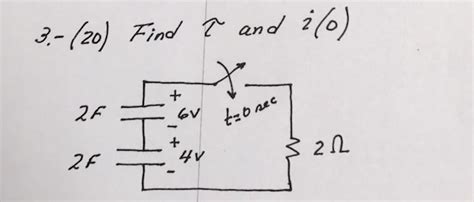 3.-(20) Find τ and i(0)
+
2F 6V t=0 sec
-
+
2F 4V 2Ω
-